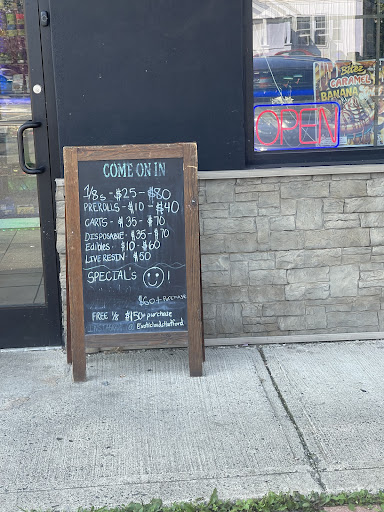 COME ON IN
1/8s - $25 - $80
PREROLLS - $10 - $40
CARTS - $35 - $70
DISPOSABLE - $35 - $70
Edibles - $10 - $60
LIVE RESIN - $50
SPECIAL'S !
$60+ PURCHASE
FREE 1/8 $150+ purchase
@
OPEN
Bitez
CARAMEL
BANANA